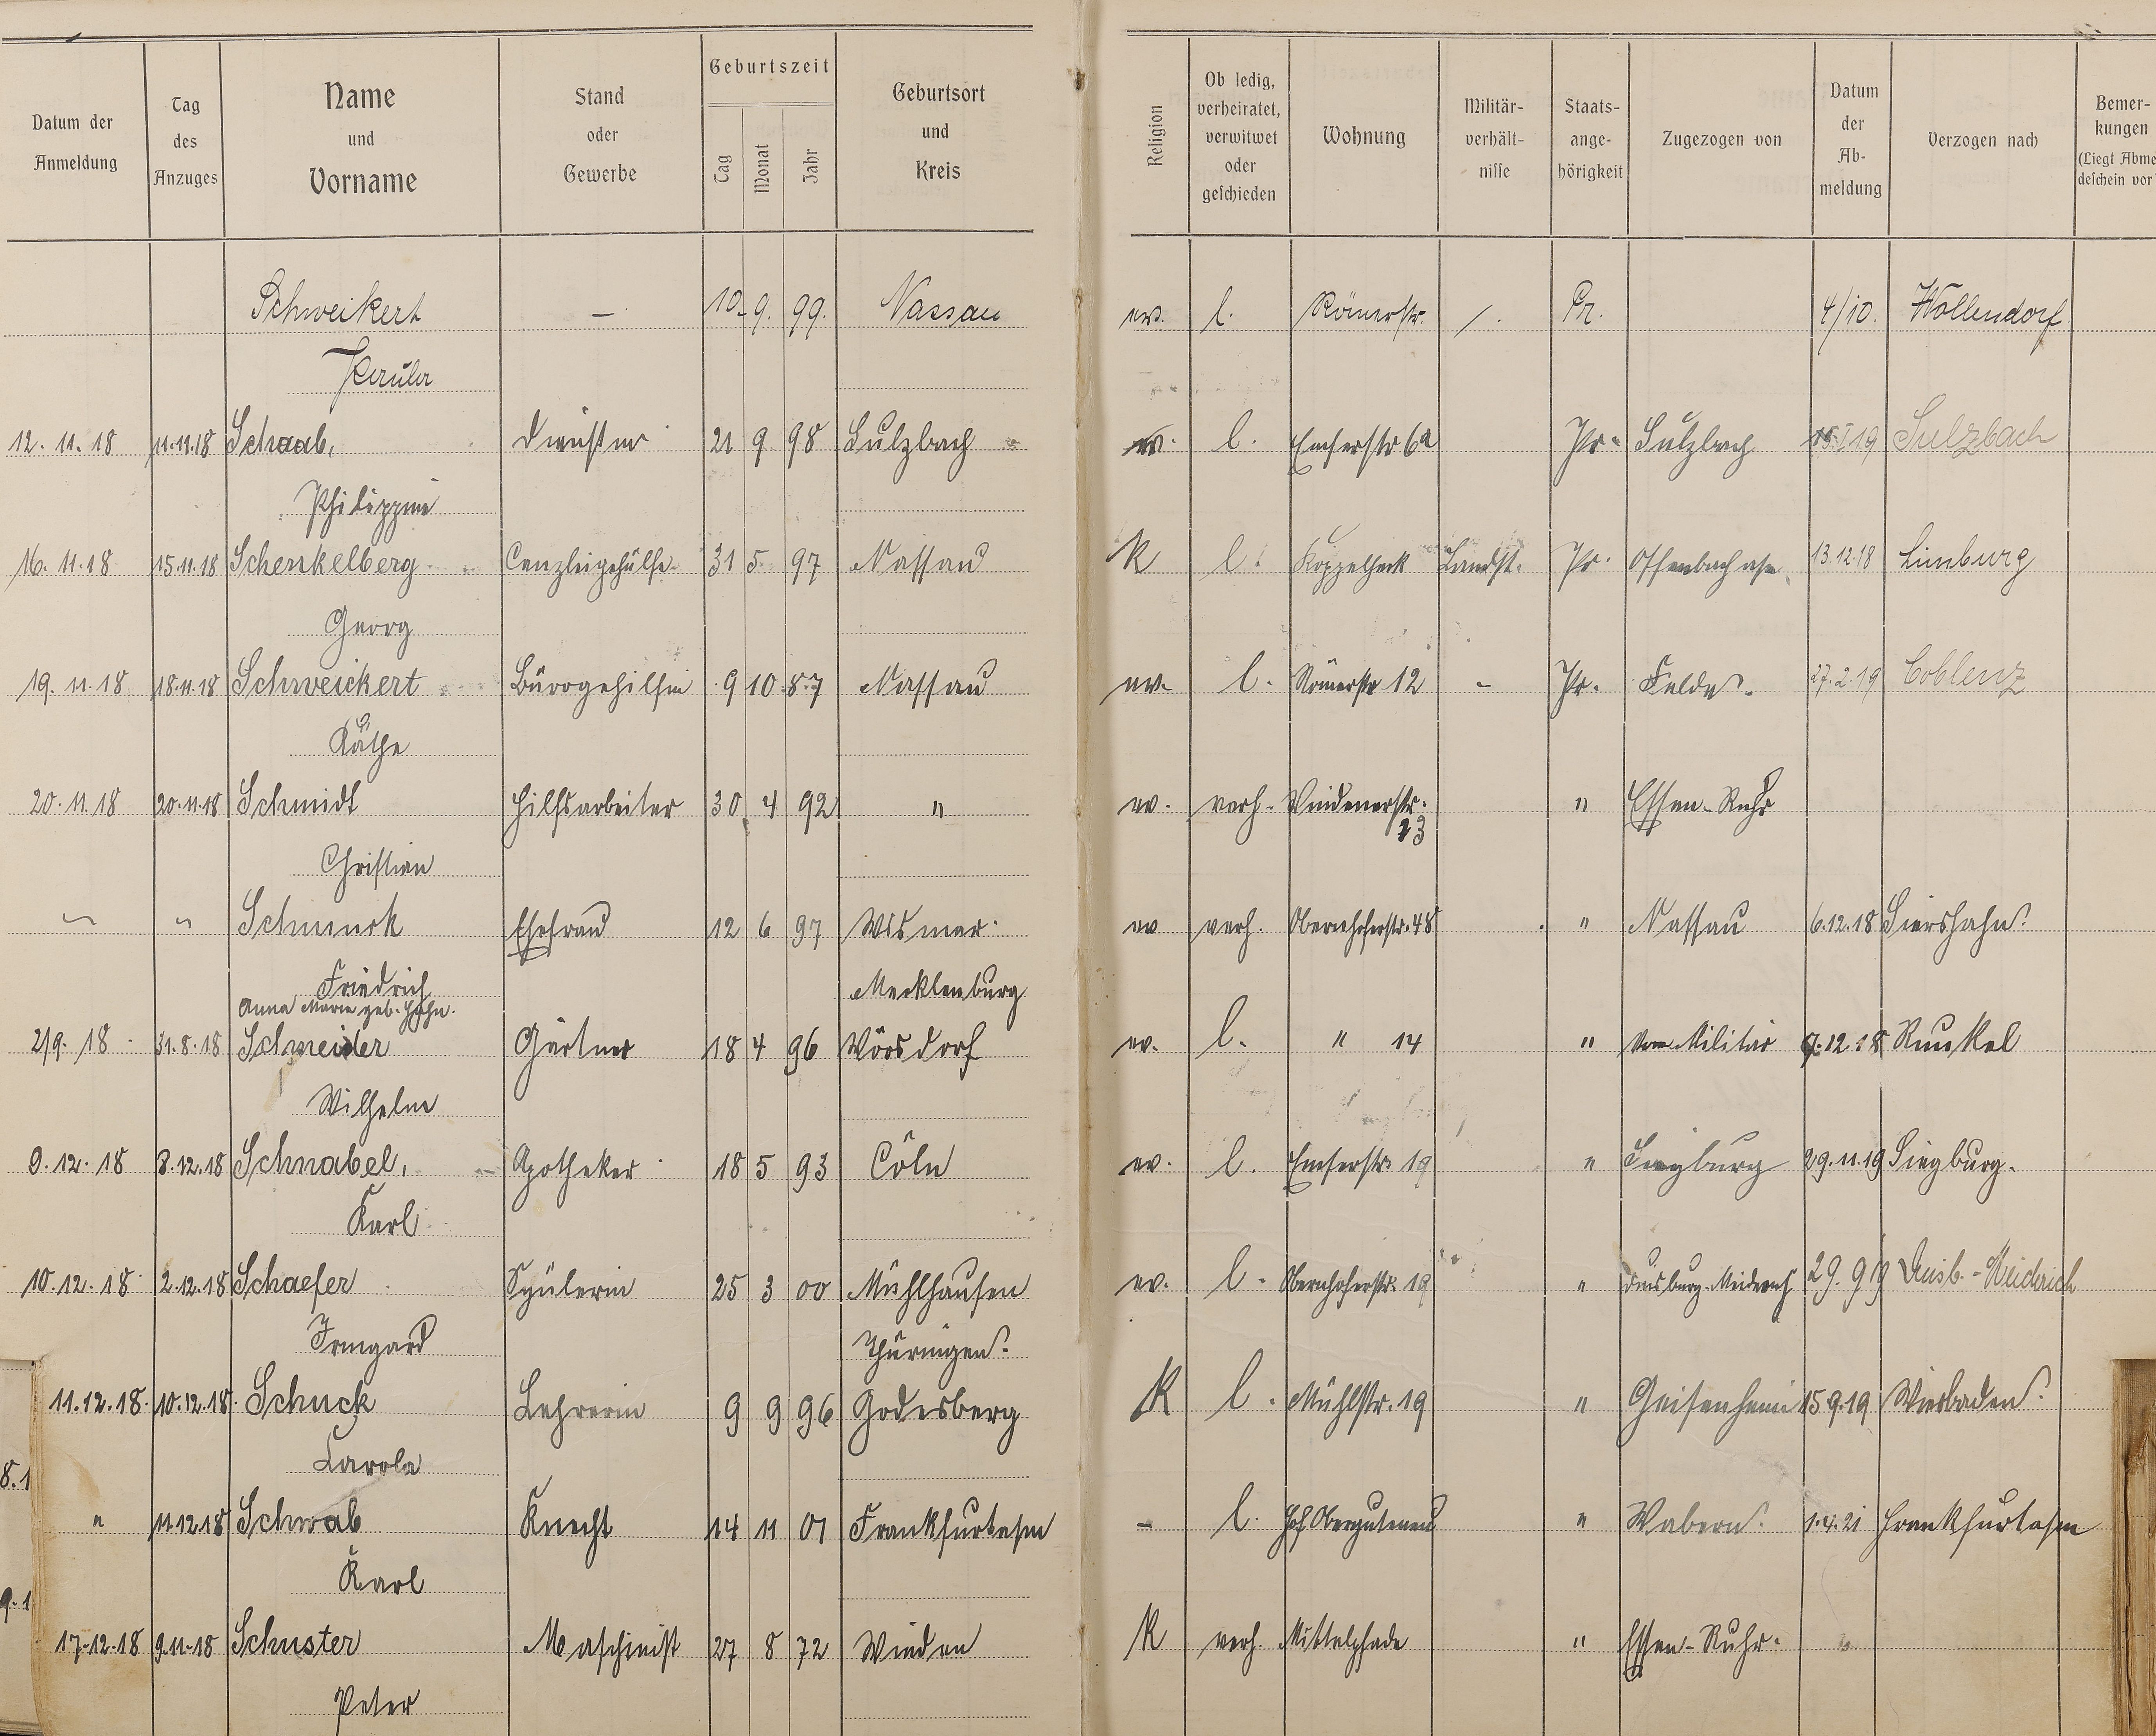 Datum der Anmeldung | Tag des Anzuges | Name und Vorname | Stand oder Gewerbe | Geburtszeit Tag Monat Jahr | Geburtsort und Kreis | Religion | Ob ledig, verheiratet, verwitwet oder geschieden | Wohnung | Militär-verhält-nisse | Staats-ange-hörigkeit | Zugezogen von | Datum der Ab-meldung | Verzogen nach | Bemer-kungen (Liegt Abme deschein vor
Schweikert — 10. 9. 99. Nassau ev. l. Römerstr. /. Pr. 4/10. Wollendorf
Paula
12. 11. 18 11.11.18 Schaab, 21 9 98 Sulzbach ev. l. Emserstr 6a Pr. Sulzbach 15.I.19 Sulzbach
Philippine
16. 11. 18 15.11.18 Schenkelberg Canzleigehülfe 31 5 97 Nassau K l. Koppelheck Landst. Pr. Offenbach a/m 13.12.18 Limburg
Georg
19. 11. 18 18.11.18 Schweickert Bürogehilfin 9 10 87 Nassau ev. l. Römerstr 12 - Pr. Felde. 27.2.19 Coblenz
Käthe
20. 11. 18 20.11.18 Schmidt Hilfsarbeiter 30 4 92 " ev. verh. Windenerstr. " Essen-Ruhr
23
Christian
" " Schmuck Ehefrau 12 6 97 Wismar ev verh. Obernhoferstr. 48 " Nassau 6.12.18 Siershahn.
Friedrich Mecklenburg
Anna Marie geb. Hahn.
2/9. 18 31.8.18 Schneider Gärtner 18 4 96 Wörsdorf ev. l. " 14 " vom Militär 7.12.18 Runkel
Wilhelm
9. 12. 18 8.12.18 Schnabel, Apotheker 18 5 93 Cöln ev. l. Emserstr. 19 " Siegburg 29.11.19 Siegburg.
Karl
10. 12. 18 2.12.18 Schaefer Schülerin 25 3 00 Mühlhausen ev. l. Obernhoferstr. 19 " Duisburg-Meiderich 29.9.19 Duisb.-Meiderich
Irmgard Thüringen.
11. 12. 18. 10.12.18. Schuck Lehrerin 9 9 96 Godesberg K l. Mühlstr. 19 " Geisenheim 15.9.19 Wiesbaden.
Carola
8.1
" 11.12.18 Schwab Knecht 14 11 01 Frankfurt a/m - l. Hof Obergutenau " Wabern. 1.4.21 Frankfurt a/m
Karl
9.1
17.12.18 9.11.18 Schuster Maschinist 27 8 72 Winden K verh. Mittelpfade " Essen-Ruhr.
Peter